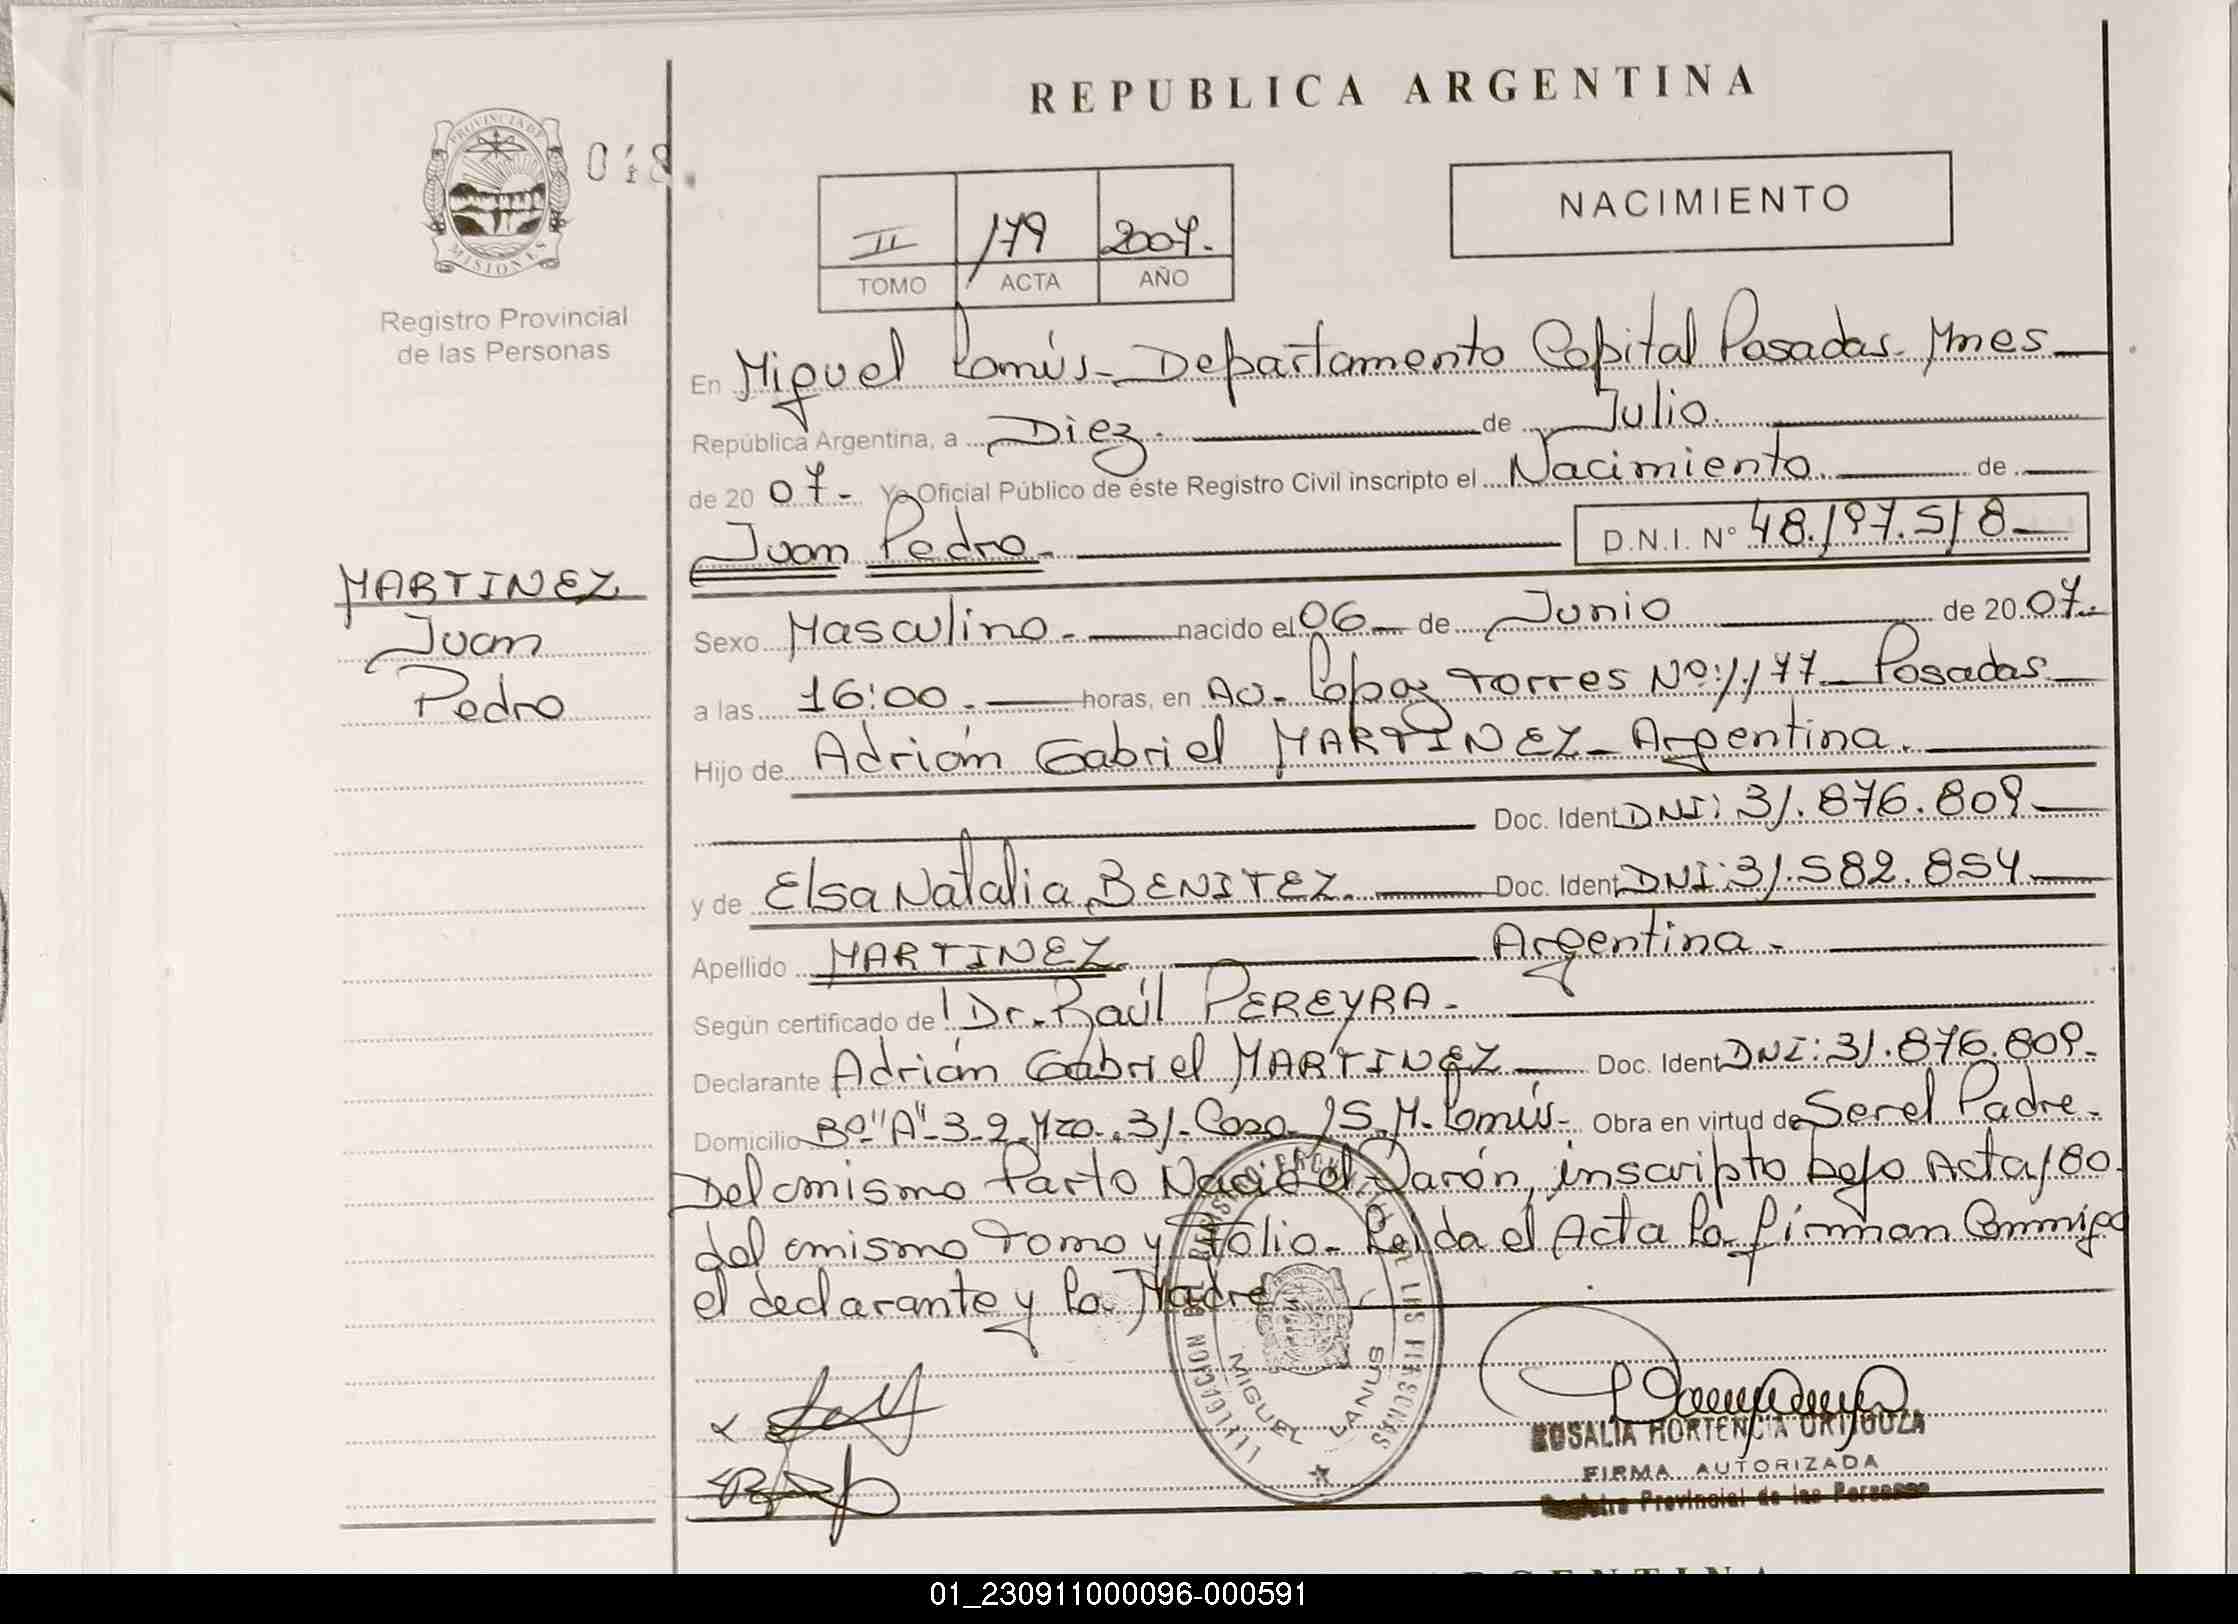 REPUBLICA ARGENTINA
PROVINCIA DE MISIONES
018
NACIMIENTO
II 179 2007.
TOMO ACTA AÑO
Registro Provincial
de las Personas
En Miguel Lanús - Departamento Capital Posadas - Mnes
República Argentina, a Diez. de Julio.
de 20 07 - Yo Oficial Público de éste Registro Civil inscripto el Nacimiento. de
Juan Pedro - D.N.I. Nº 48.197.518
MARTINEZ
Juan
Pedro
Sexo Masculino. nacido el 06 de Junio de 20 07.
a las 16:00. horas, en Av. Lopez Torres Nº: 1.177 - Posadas
Hijo de Adrián Gabriel MARTINEZ - Argentina.
Doc. Ident DNI: 31.876.809
y de Elsa Natalia BENITEZ. Doc. Ident DNI: 31.582.854
Apellido MARTINEZ Argentina -
Según certificado de Dr. Raúl PEREYRA -
Declarante Adrián Gabriel MARTINEZ Doc. Ident DNI: 31.876.809 -
Domicilio Bº "A"-3-2 Mza. 31. Casa 15 M. Lanús - Obra en virtud de Ser el Padre -
Del mismo Parto Nació el Varón, inscripto bajo Acta 180
del mismo Tomo y Folio - Leida el Acta la firman Conmigo
el declarante y la Madre
MIGUEL LANUS
ROSALIA HORTENCIA
FIRMA AUTORIZADA
Registro Provincial de las Personas
ARGENTINA
01_230911000096-000591